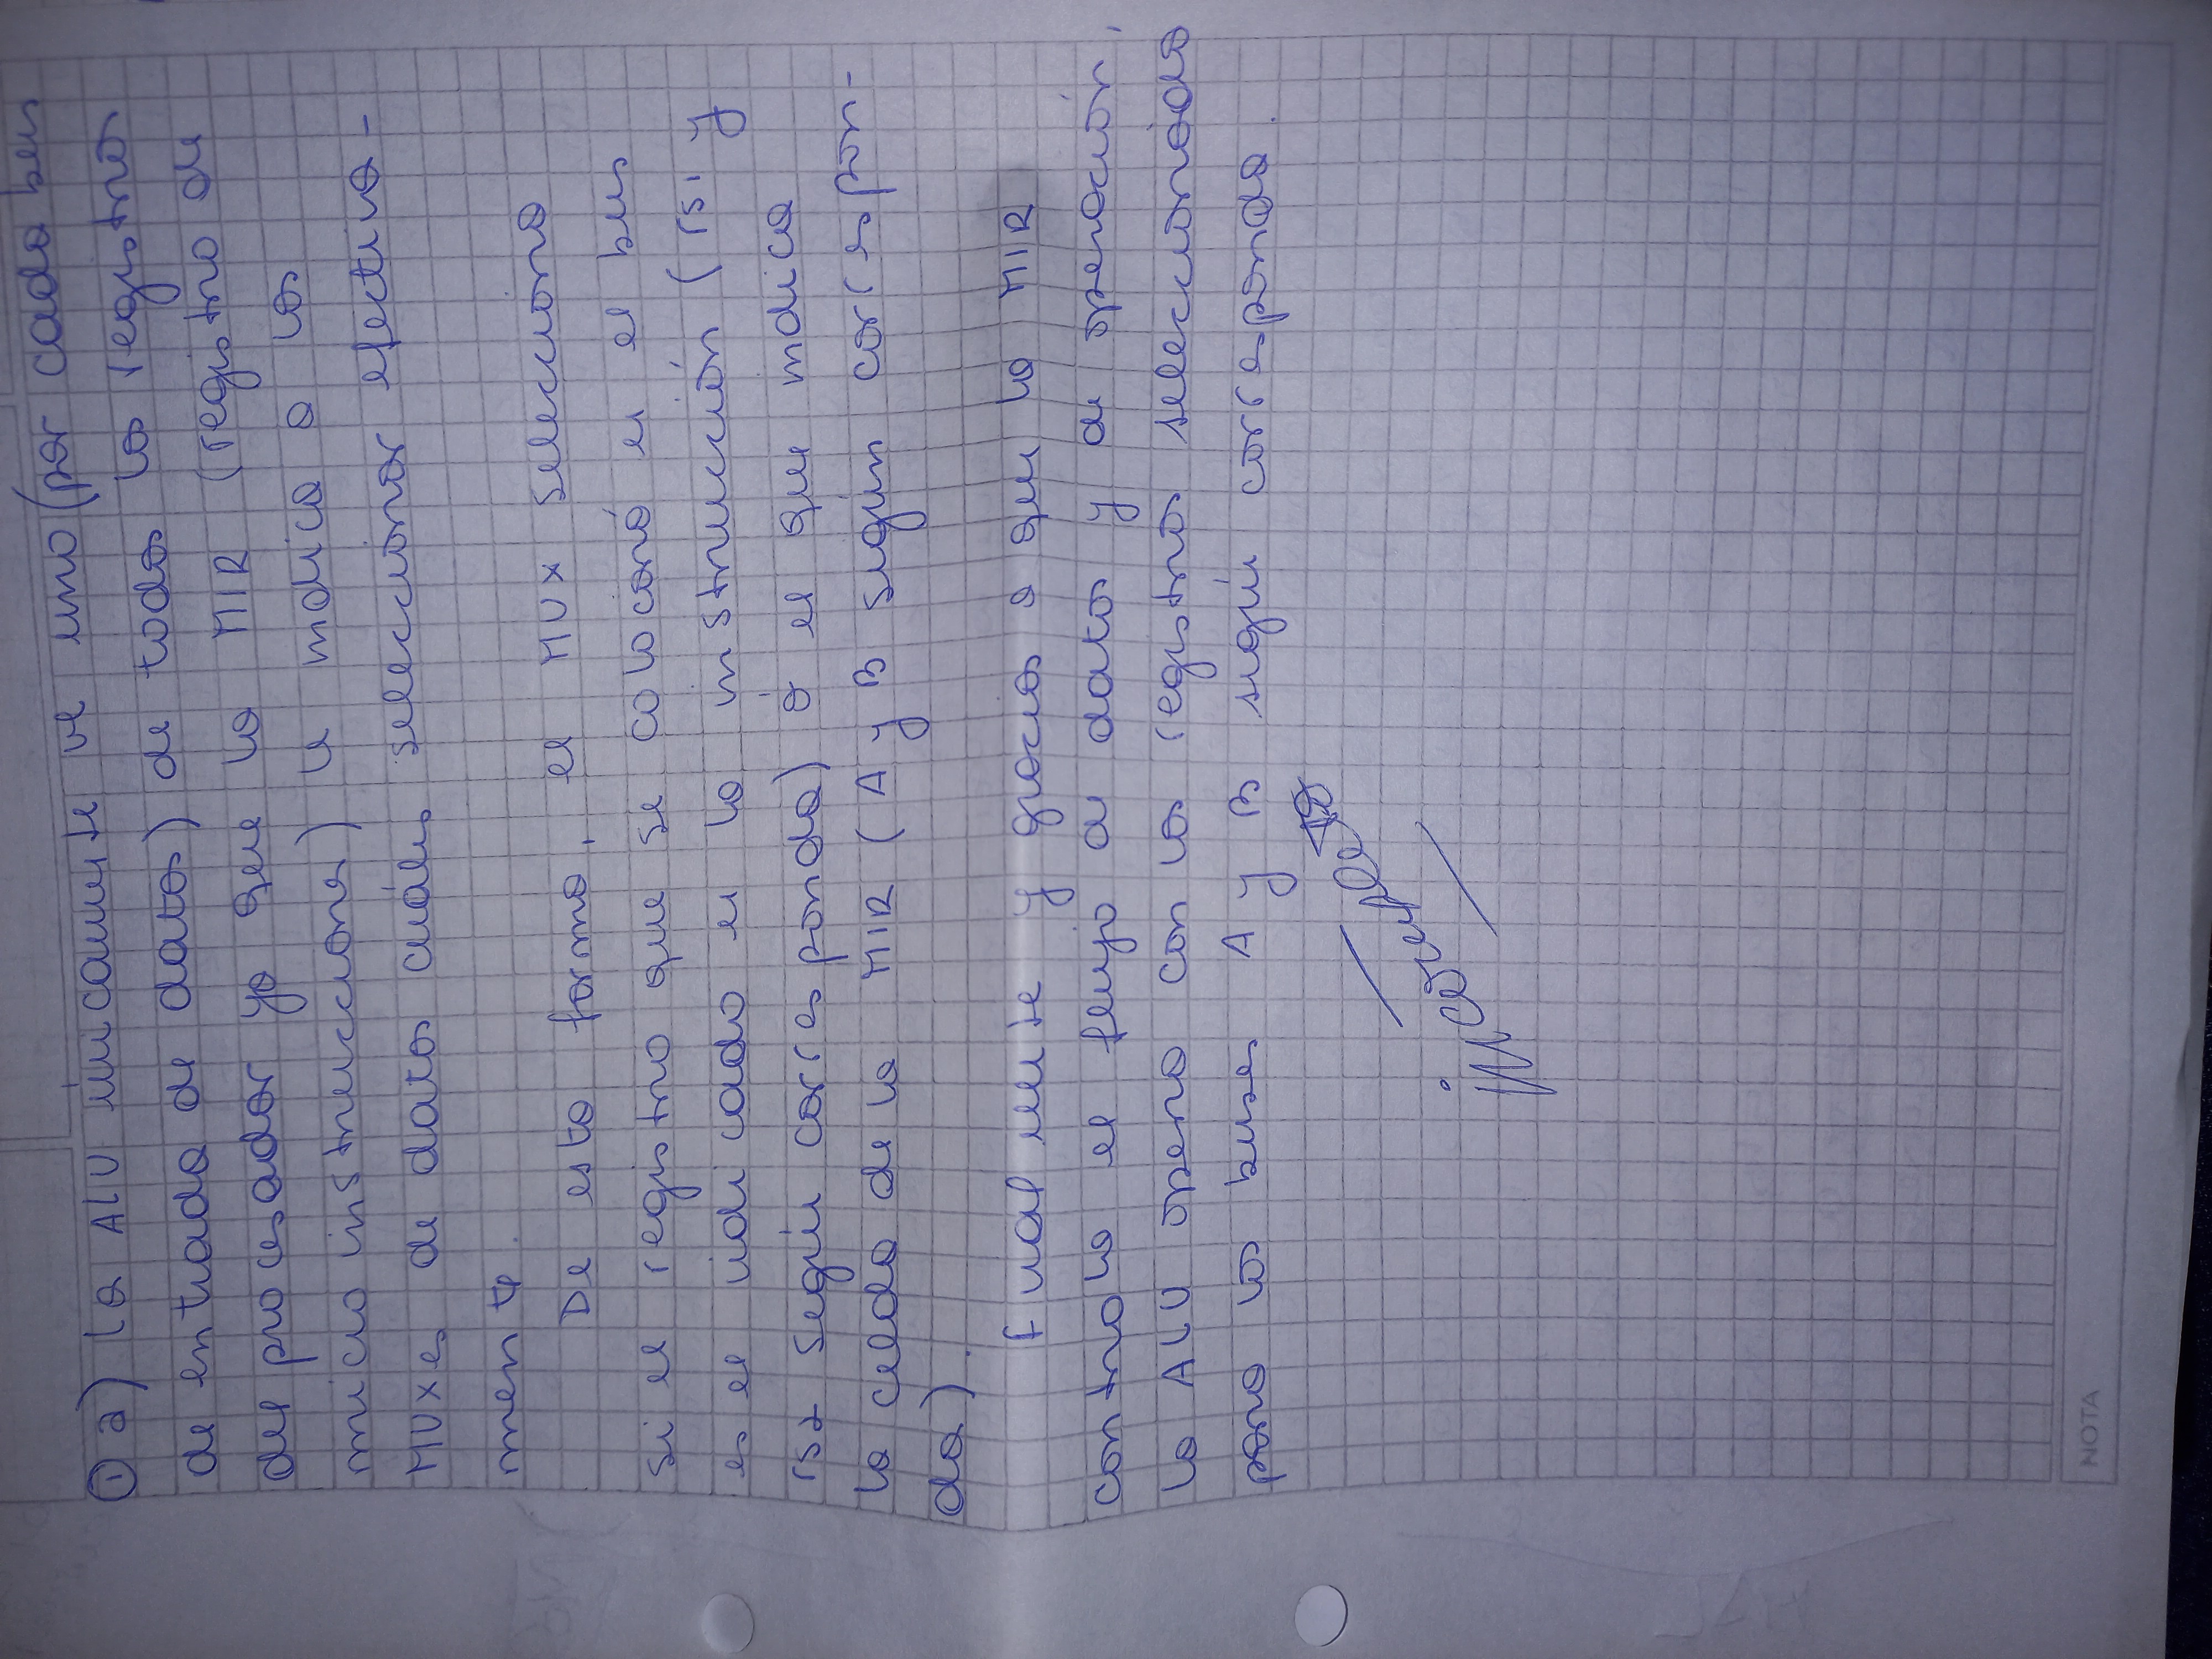 ① a) La ALU únicamente ve uno (por cada bus
de entrada de datos) de todos los registros
del procesador ya que la MIR (registro de
micro instrucciones) le indica a los
MUXes de datos cuáles seleccionar efectiva-
mente.
De esta forma, el MUX selecciona
si el registro que se colocará en el bus
es el indicado en la instrucción (rs1 y
rs2 según corresponda) ó el que indica
la celda de la MIR (A y B según correspon-
da).
Finalmente y gracias a que la MIR
controla el flujo de datos y de operación,
la ALU opera con los registros seleccionados
para los buses A y B según corresponda.
incompleto
NOTA